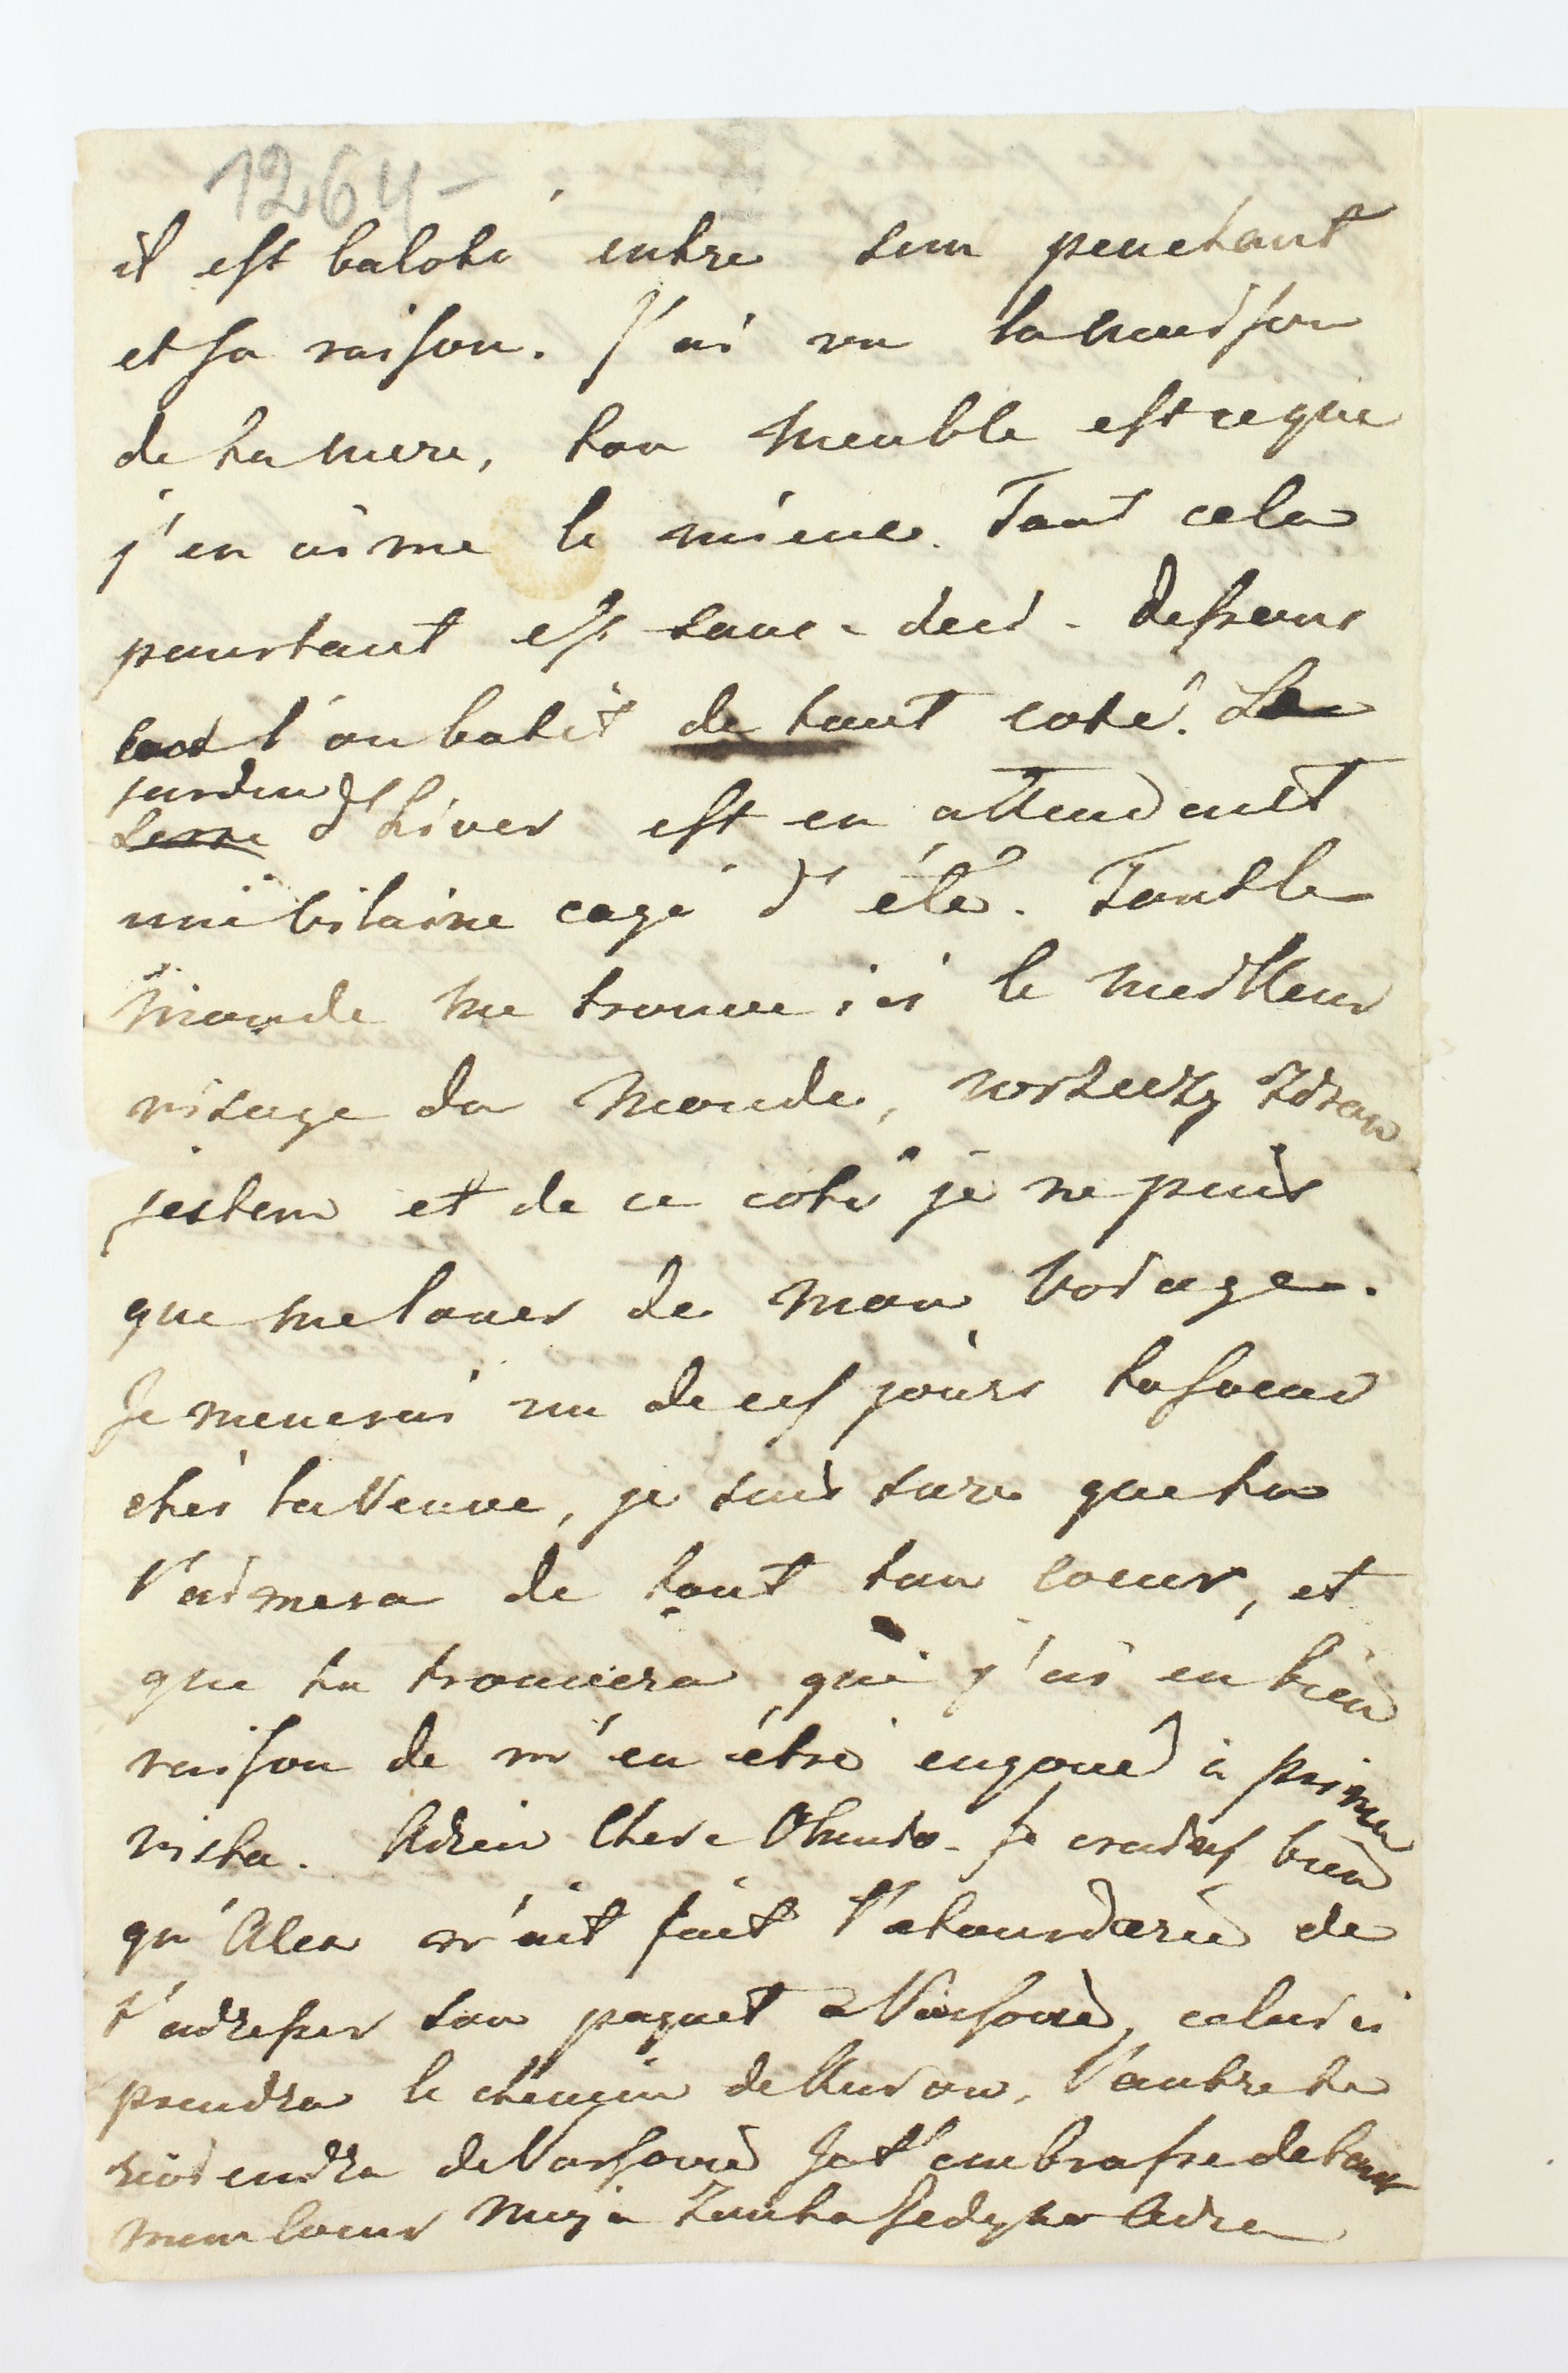 1264-
il est baloté entre son penchant
et sa raison. J'ai vu la maison
de ta mere, ton meuble est ce que
j'en aime le mieux. Tout cela
pourtant est sans-deld-dessous
l'on batit de tout coté. Le
jardin
d'hiver est en attendant
une vilaine cage d'été. Tout le
monde me trouve ici le meilleur
visage du monde,
jestem et de ce coté je ne puis
que me louer de mon voiage.
Je menerai un de ces jours ta soeur
chés ta Veuve, je suis sure que tu
l'aimera de tout ton coeur, et
que tu trouvera que j'ai eu bien
raison de m'en étre engoué à prima
vista. Adieu Chere je crains bien
qu'Alex n'ait fait l'etourderie de
t'adresser son paquet a Varsovie, celui ci
prendra le chemin de l'autre te
viendra de Varsovie Je t'embrasse de tout
mon coeur